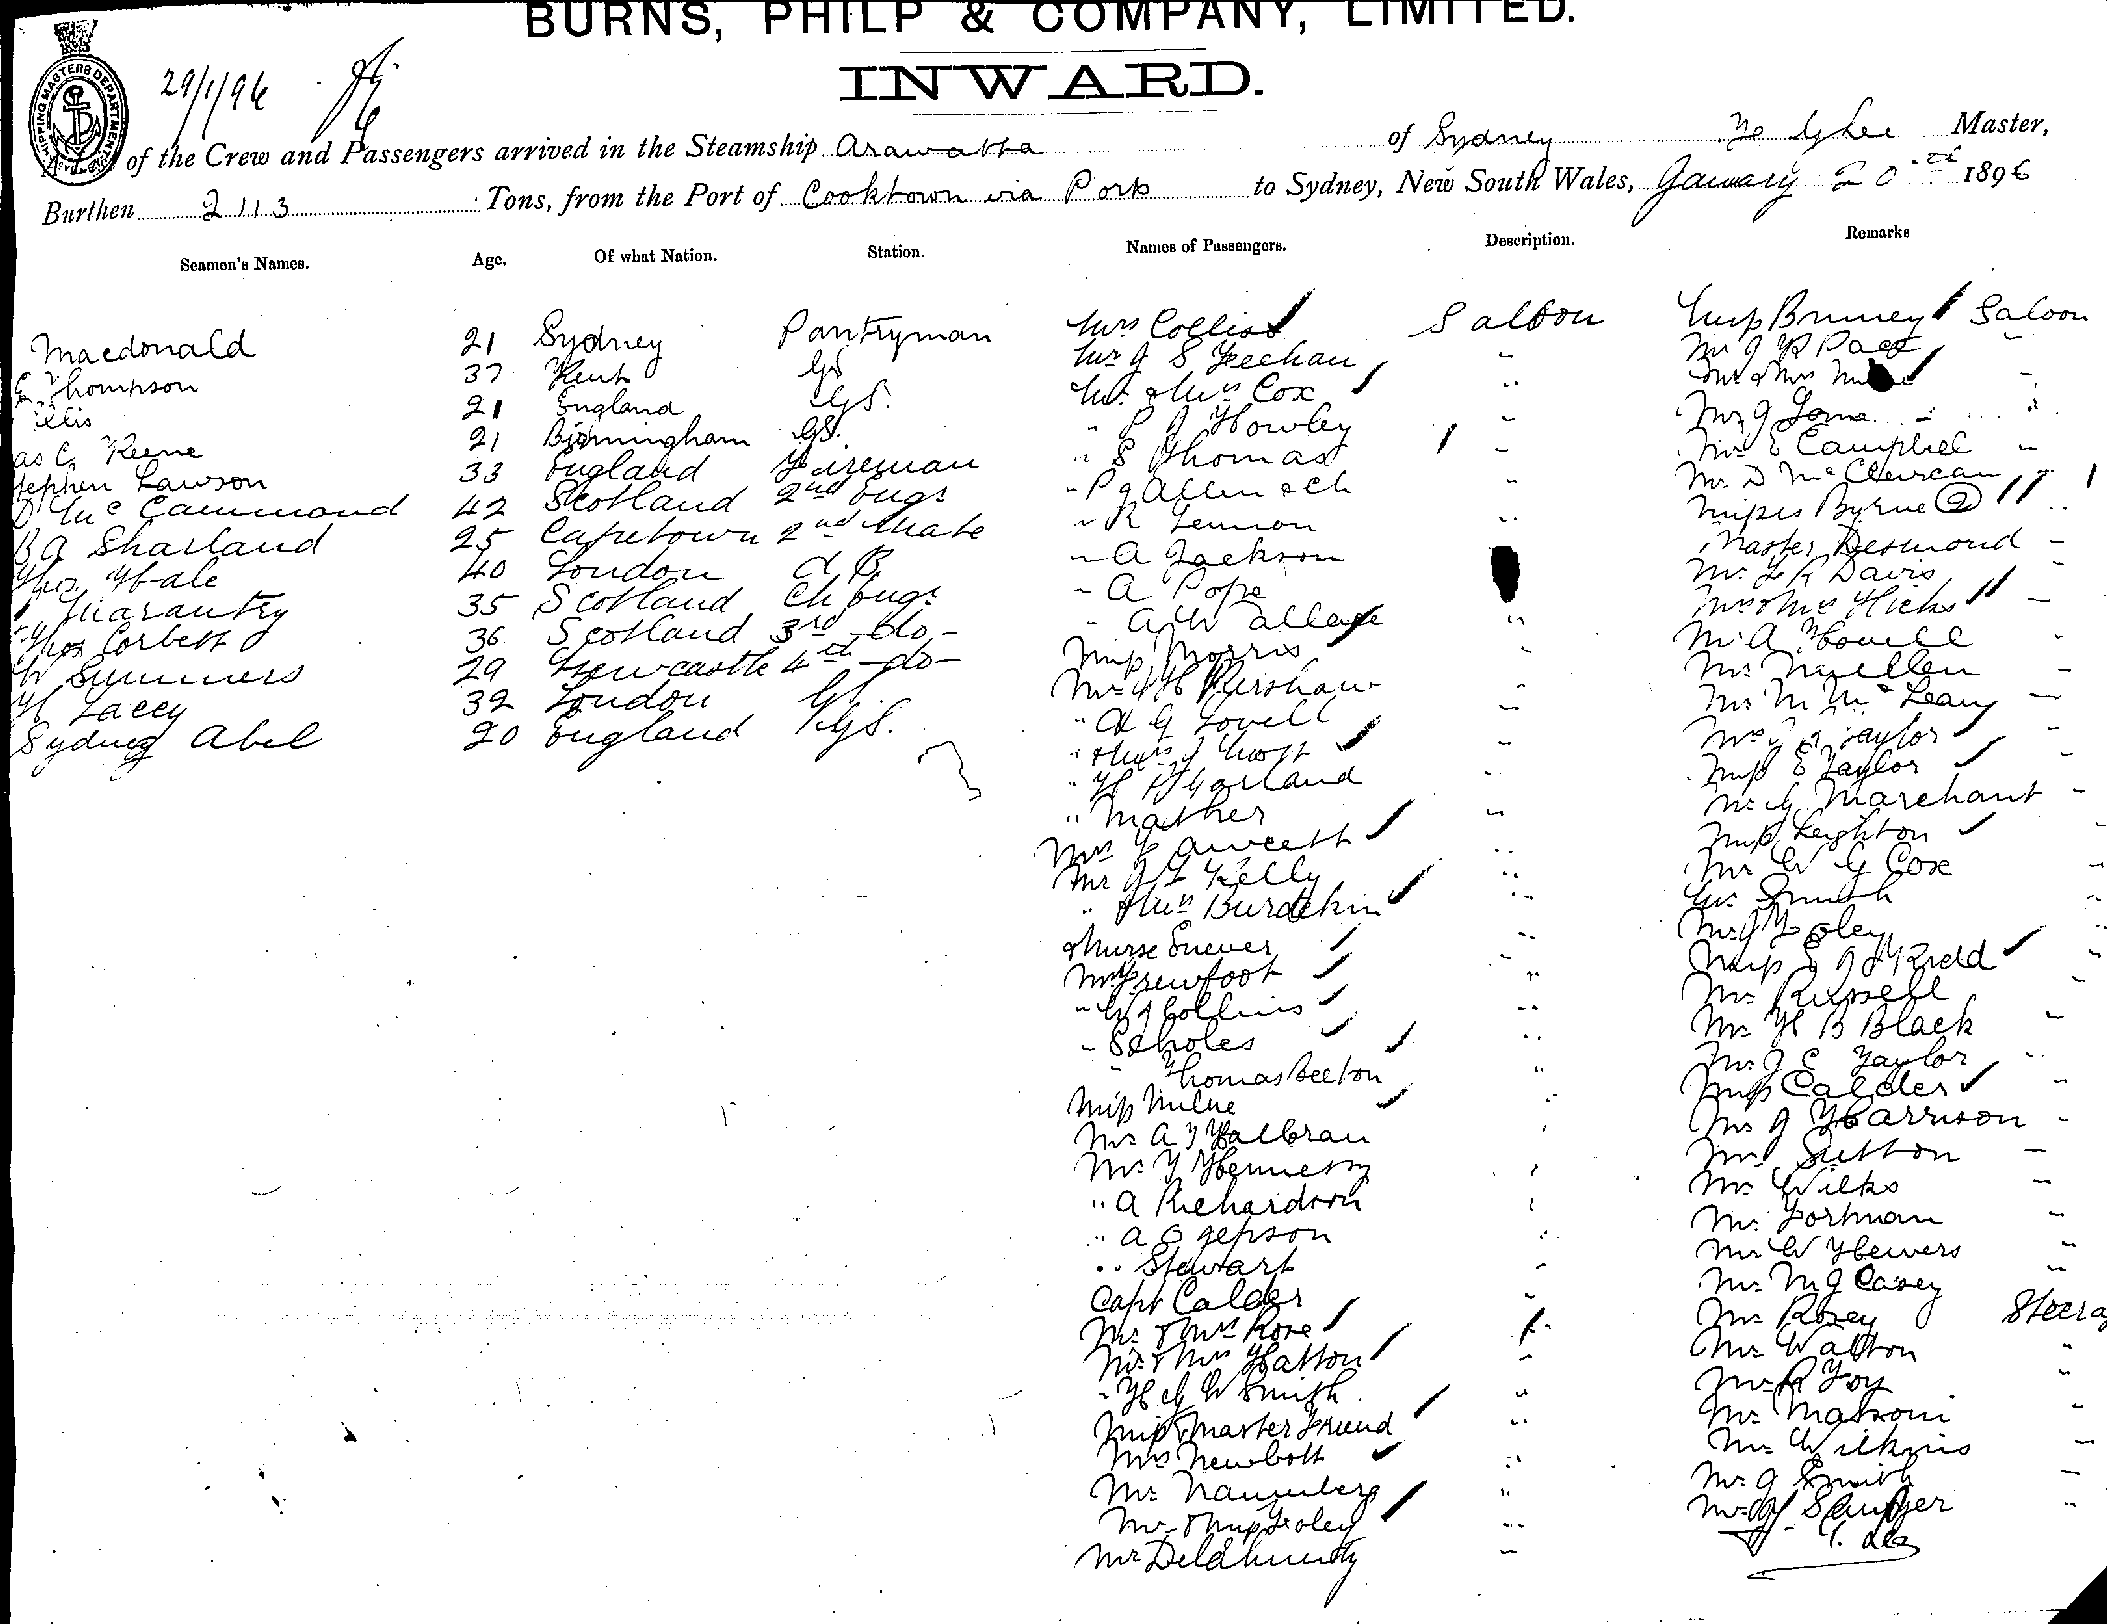 BURNS, PHILP & COMPANY, LIMITED.
INWARD.
SHIPPING MASTERS DEPARTMENT
29/1/96
of the Crew and Passengers arrived in the Steamship Arawatta of Sydney Master,
Burthen 2113 Tons, from the Port of Cooktown via Ports to Sydney, New South Wales, January 20th 1896
Seamen's Names. Age. Of what Nation. Station. Names of Passengers. Description. Remarks
Macdonald 21 Sydney Pantryman
Thompson 37 Kent GS
Ellis 21 England GS.
as C. Keene 21 Birmingham GS.
tephen Lawson 33 England Fireman
Mc Cammond 42 Scotland 2nd Engr
A Sharland 25 Capetown 2nd Mate
Hale 40 London A B
Marantry 35 Scotland Ch Engr
Thos Corbett 36 Scotland 3rd -do-
W Summers 29 Newcastle 4th -do-
H Lacey 32 London
Sydney Abel 20 England GS.
Mrs Colliss Saloon
Mr J S Feehan "
Mr & Mrs Cox "
" P J Howley "
" S Thomas "
" P J
" R Lennon "
" A Jackson
" A Pope
" A Wallace "
Miss Morris "
Mr Kershaw "
" A G Lovell "
" & Mrs J
" H Harland "
" Mather "
Mrs Fawcett "
Mr Kelly "
" & Mrs Burdekin "
& Nurse "
Mr Grewfoot "
" Collins "
" Scholes "
" Thomas Beeton "
Miss Milne "
Mr A J Halbran
Mr Hennessy
" A Richardson
" A Jepson
" Stewart "
Capt Calder "
Mr & Mrs Rose "
Mr & Mrs Hatton "
" H G W Smith "
Miss & Master Friend "
Mrs Newbott "
Mr Naumberg "
Mr & Miss Foley "
Mr Delahunty "
Miss Brumey Saloon
Mr J R Pace "
Mr & Mrs
Mr J "
Mr E Campbell "
Mr D McClurcan "
Misses Byrne (2) "
Master Desmond "
Mr F R Davis
Mr & Mrs Hicks "
Mr A Howell "
Mr Muellen "
Mr M Mc Leary "
Mr Taylor "
Miss E Taylor "
Mr G Marchant "
Miss Leighton
Mr W G Cox "
Mr Smith "
Mr J Foley "
Miss Kidd "
Mr Russell
Mr H B Black "
Mr J E Taylor "
Miss Calder "
Mr J Harrison "
Mr Sutton "
Mr Wilks "
Mr Fortman "
Mr W Hewers "
Mr M J Casey "
Mr Rosey Steera
Mr Walton "
Mr R Foy "
Mr Matroni "
Mr Wilkins "
Mr J Smith "
Mr "